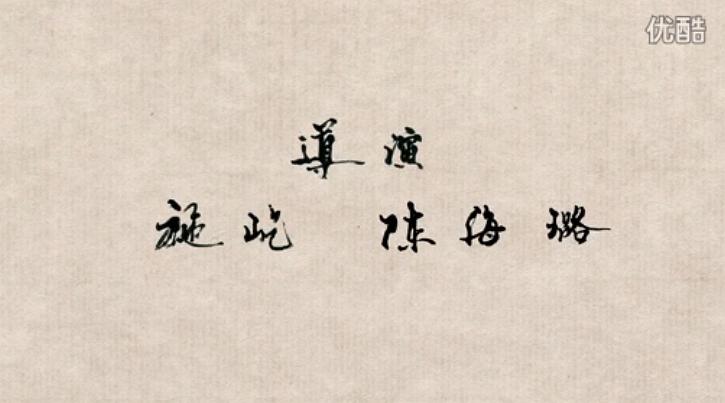 优酷
導演
施屹 陈海璐